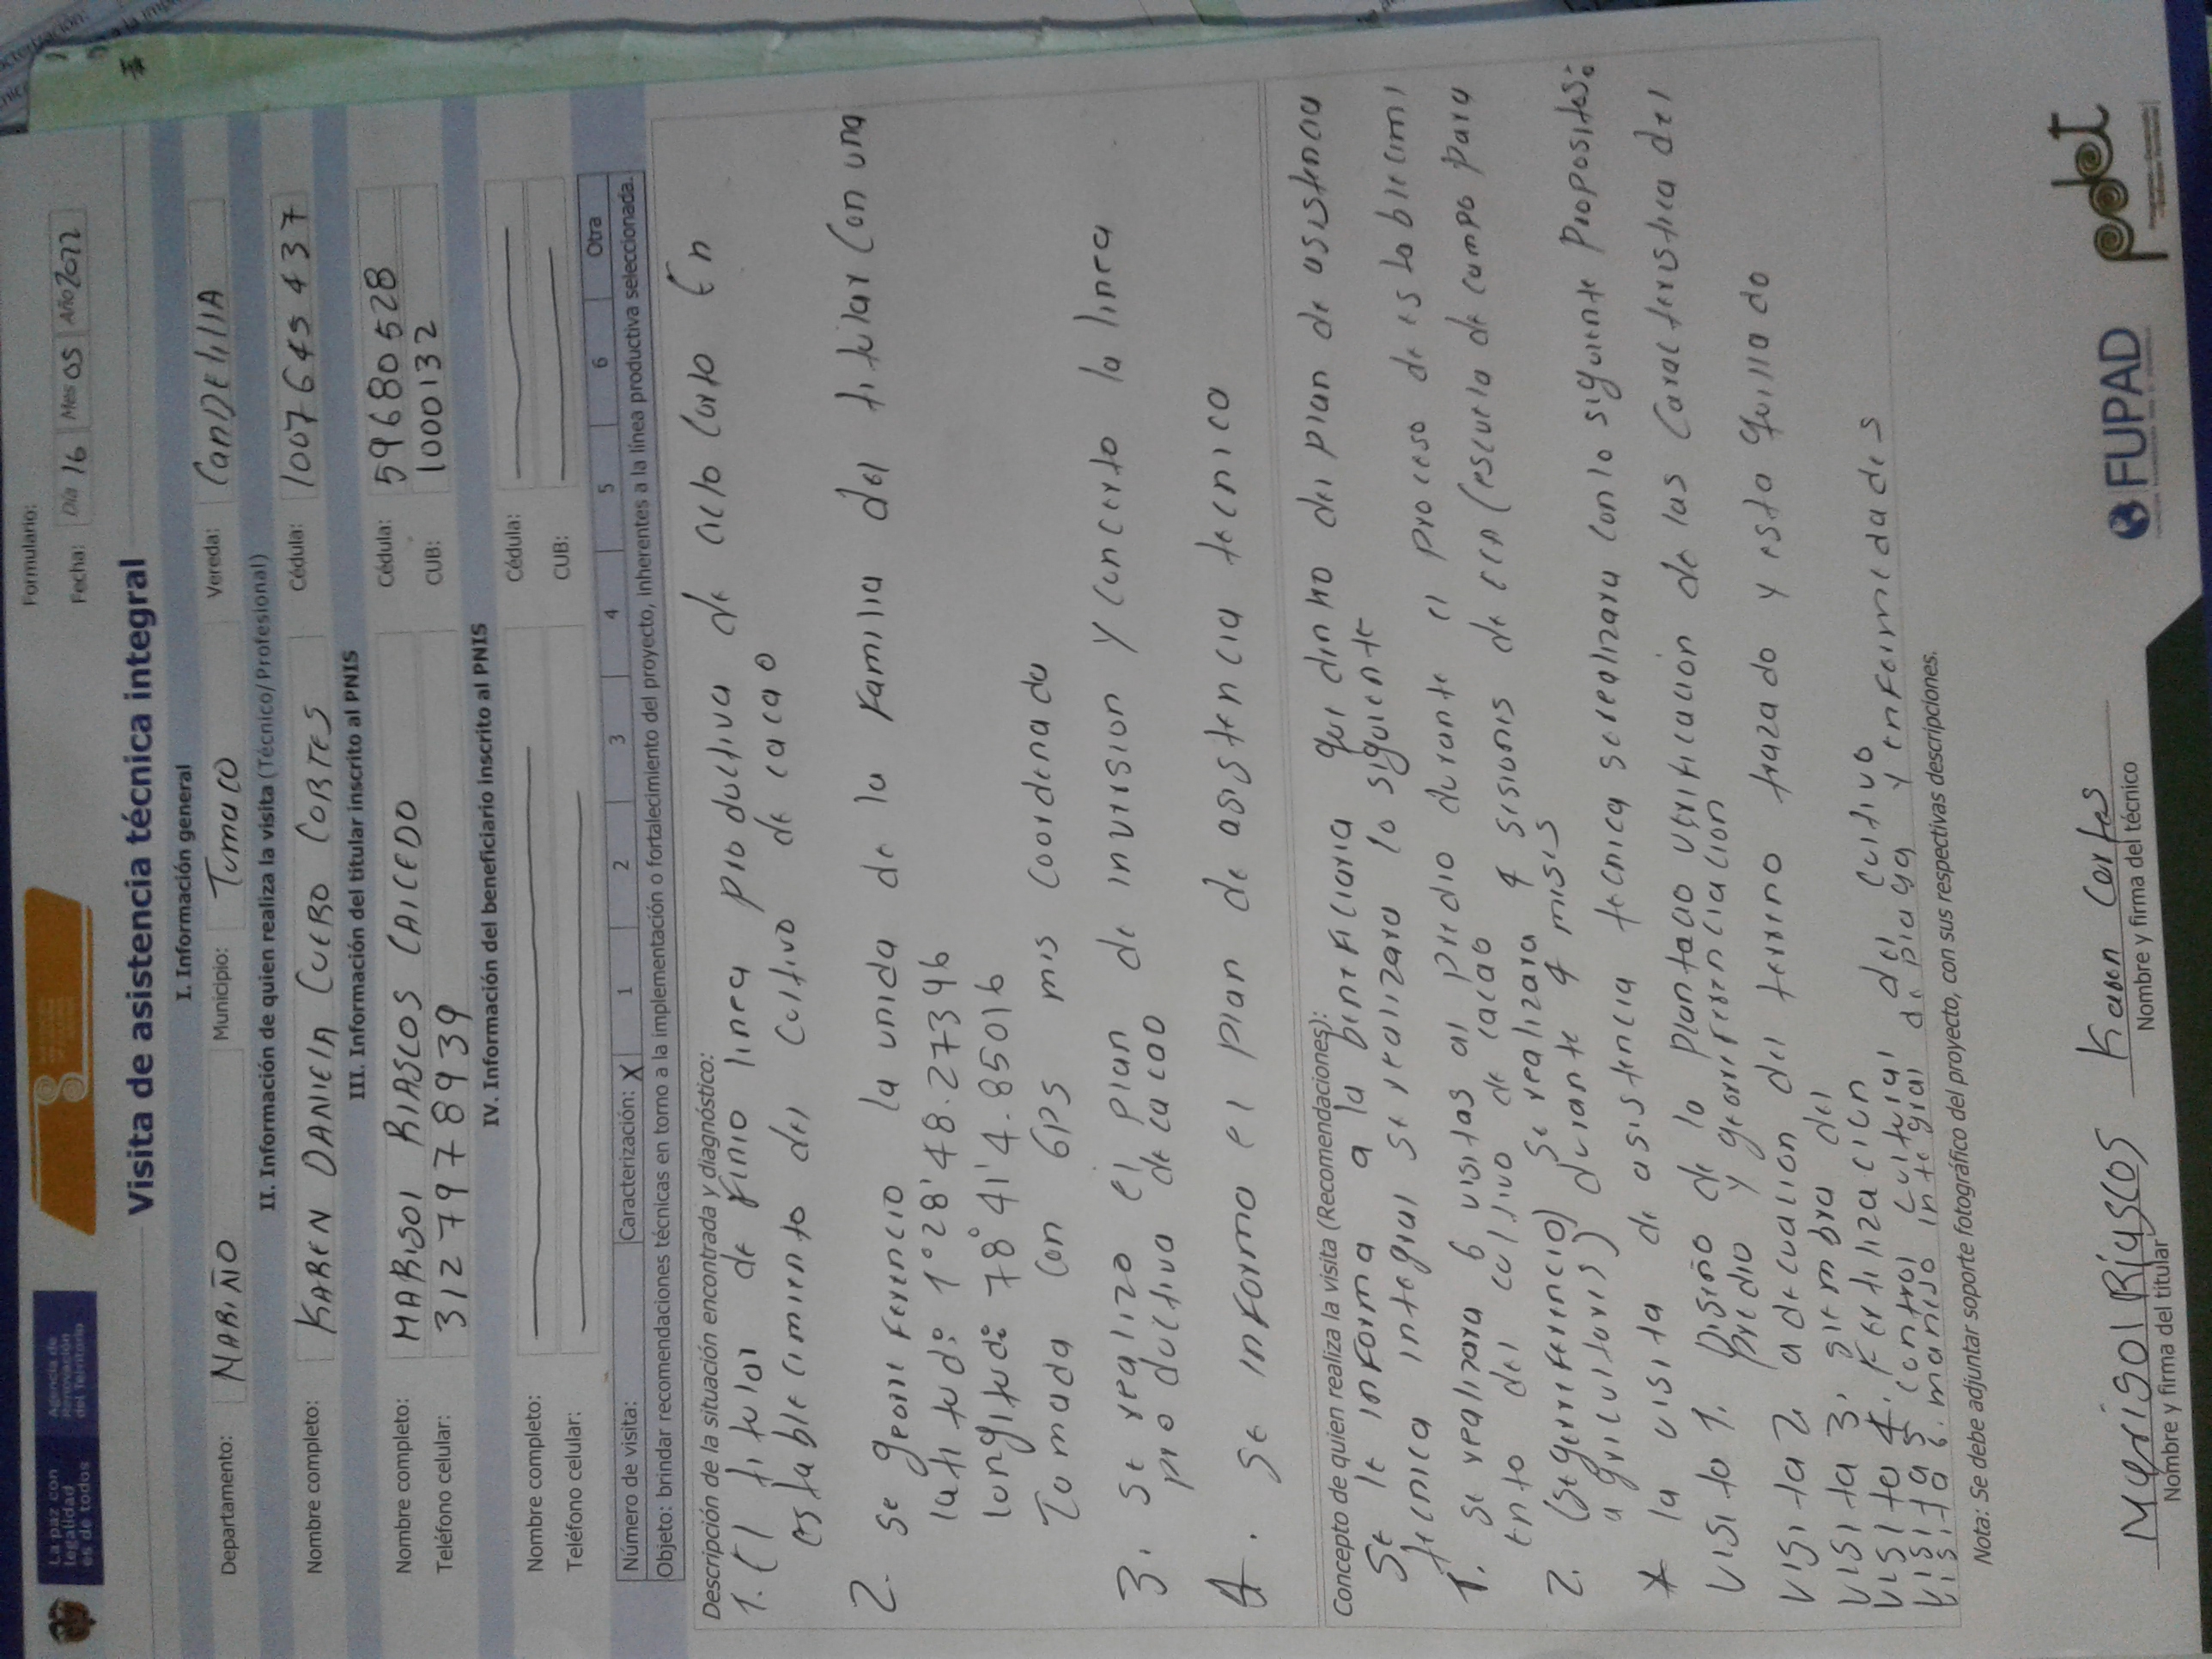 La paz con
legalidad
es de todos
Agencia de
Renovación
del Territorio
Formulario:
Fecha: Día 16 Mes 05 Año 2022
Visita de asistencia técnica integral
I. Información general
Departamento: NARIÑO Municipio: TumaCO Vereda: CanDElIIA
II. Información de quien realiza la visita (Técnico/Profesional)
Nombre completo: KAREN DANIElA CUERO CORTES Cédula: 1007645437
III. Información del titular inscrito al PNIS
Nombre completo: MARISOl RIASCOS CAICEDO Cédula: 59680528
Teléfono celular: 3127978939 CUB: 1000132
IV. Información del beneficiario inscrito al PNIS
Nombre completo: Cédula:
Teléfono celular: CUB:
Número de visita: Caracterización: X 1 2 3 4 5 6 Otra
Objeto: brindar recomendaciones técnicas en torno a la implementación o fortalecimiento del proyecto, inherentes a la línea productiva seleccionada.
Descripción de la situación encontrada y diagnóstico:
1. El titular de Finio linea productiva de ciclo Corto En
establecimiento del cultivo de cacao
2. se georreferencio la unida de la Familia del titular Con una
latitud: 1°28'48.27396
longitud: 78°41'4.85016
Tomada con GPS mis coordenada
3. se realizo el plan de inversion y concerto la linea
productiva de cacao
4. se informo el plan de asistencia tecnica
Concepto de quien realiza la visita (Recomendaciones):
Se le informa a la beneficiaria que dinno del plan de asistencia
tecnica integral se realizara lo siguiente
1. se realizara 6 visitas al predio durante el proceso de establecimi
ento del cultivo de cacao
2. (se gerreferencio) se realizara 4 sisiones de ECA (escuela de campo para
agricultores) durante 4 meses
* la visita de asistencia tecnica se realizara con lo siguiente propositos:
Visita 1. Diseño de la plantacio verificacion de las Caracteristica del
predio y georreferenciacion
Visita 2. adecuacion del terreno trazado y esta quillado
Visita 3. siembra del
Visita 4. Fertilizacion
Visita 5 control cultural del cultivo
Visita 6. manejo integral de plaga y enfermedades
Nota: Se debe adjuntar soporte fotográfico del proyecto, con sus respectivas descripciones.
Marisol Riascos Karen Cortes
Nombre y firma del titular Nombre y firma del técnico
FUPAD
pdet